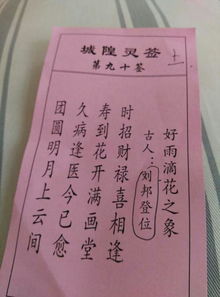 城隍灵签
上
第九十签
好雨滴花之象
古人：刘邦登位
时招财禄喜相逢
寿到花开满画堂
久病逢医今已愈
团圆明月上云间